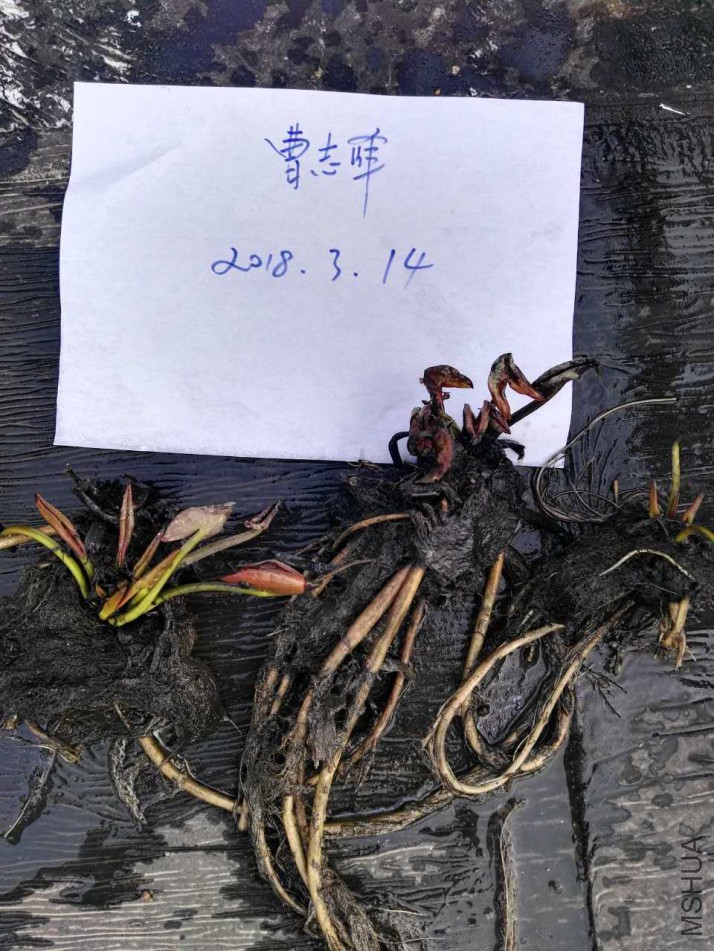 曹志晖
2018.3.14
MSHUA